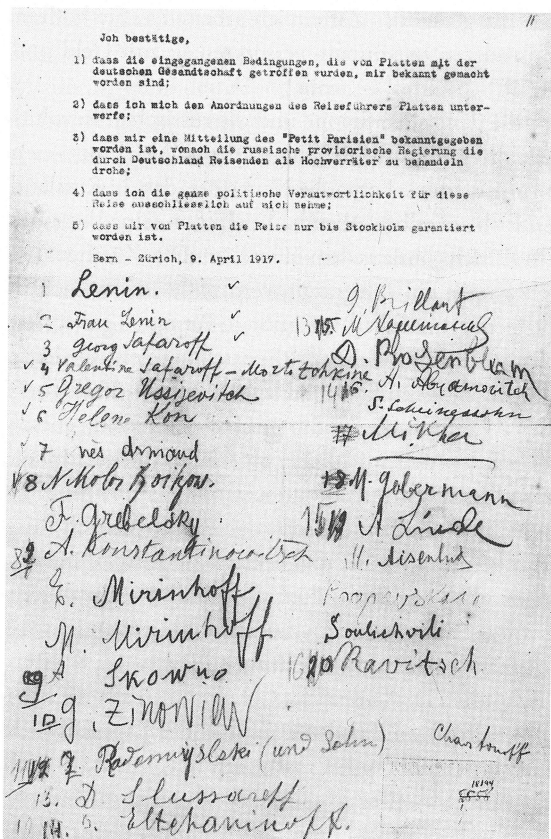 Jch bestätige,
1) dass die eingegangenen Bedingungen, die von Platten mit der
deutschen Gesandtschaft getroffen wurden, mir bekannt gemacht
worden sind;
2) dass ich mich den Anordnungen des Reiseführers Platten unter-
werfe;
3) dass mir eine Mitteilung des "Petit Parisien" bekanntgegeben
worden ist, wonach die russische provisorische Regierung die
durch Deutschland Reisenden als Hochverräter zu behandeln
drohe;
4) dass ich die ganze politische Verantwortlichkeit für diese
Reise ausschliesslich auf mich nehme;
5) dass mir von Platten die Reise nur bis Stockholm garantiert
worden ist.
Bern - Zürich, 9. April 1917.
Lenin.
2 Frau Lenin
3 Georg Safaroff
4 Valentine Safaroff - Martoschkine
5 Gregor Ussijevitch
6 Helene Kon
7 Inès Armand
8 Nikolai Boitzow.
F. Grebelsky
A. Konstantinowitsch
E. Mirinhoff
M. Mirinhoff
A Skowno
10 G. Zinowiew
Radomyslski (und Sohn)
13. D Slussareff
14. B. Eltchaninoff.
G. Brillant
13 M. Kharitonoff
D. Rosenblum
A. Abramovitch
S. Scheinessohn
Mikha
M. Gobermann
15 A Linde
M. Aisenhud
Souliachvili
20 Ravitsch
Charitonoff